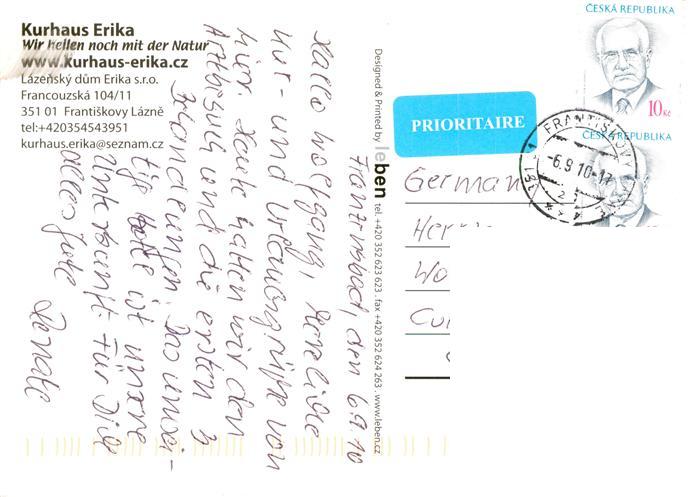 Kurhaus Erika
Wir heilen noch mit der Natur
www.kurhaus-erika.cz
Lázeňský dům Erika s.r.o.
Francouzská 104/11
351 01 Františkovy Lázně
tel:+420354543951
kurhaus.erika@seznam.cz
Franzensbad, den 6.9.10
Hallo Wolfgang, herzliche
Kur- und Urlaubsgrüße von
hier. Heute hatten wir den
Arztbesuch und die ersten 3
Anwendungen. Das
ist unsere
Unterkunft. Für Dich
alles Gute
Renate
Designed & Printed by leben tel. +420 352 623 623 . fax +420 352 624 263 . www.leben.cz
PRIORITAIRE
ČESKÁ REPUBLIKA
10 Kč
ČESKÁ REPUBLIKA
FRANTIŠKOVY
351 01
-6.9.10-17
German
Her
Wo